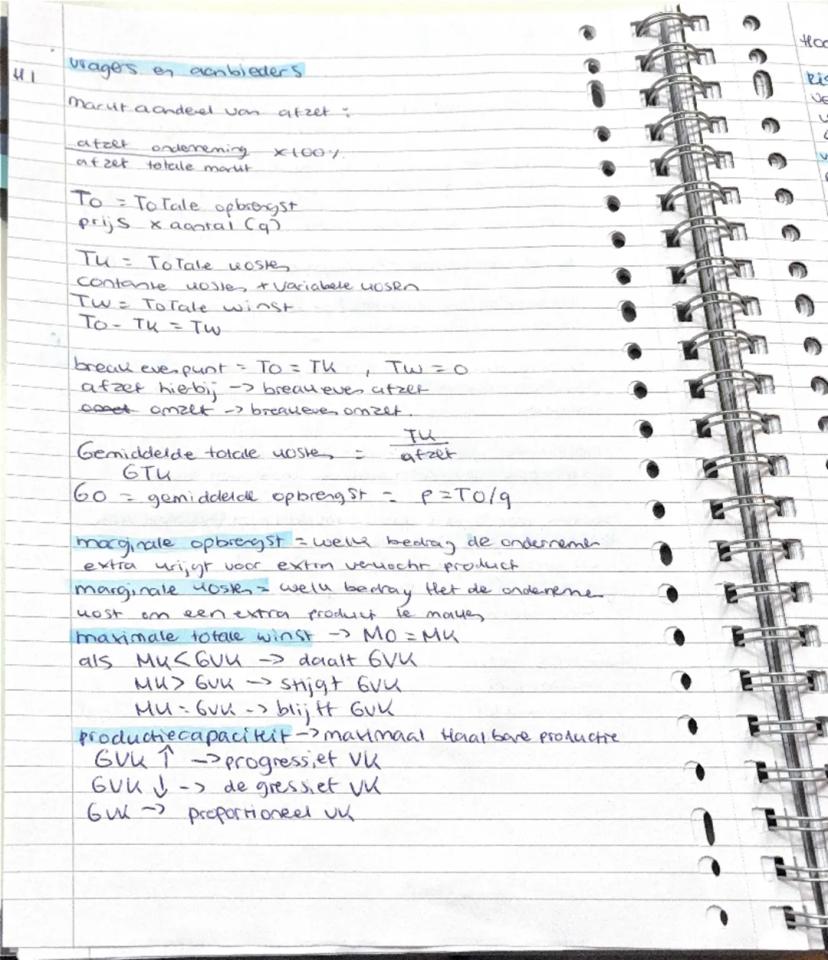 H1 vragers en aanbieders
marktaandeel van afzet :
afzet onderneming x100%
afzet totale markt
TO = TOTale opbrengst
prijs x aantal (q)
TK = TOTale kosten
constante kosten + variabele kosten
TW = TOTale winst
TO - TK = TW
break even punt = TO = TK , TW = 0
afzet hierbij -> breakeven afzet
omzet -> breakeven omzet.
Gemiddelde totale kosten = TK
afzet
GTK
GO = gemiddelde opbrengst = P = TO/q
marginale opbrengst = welk bedrag de ondernemer
extra krijgt voor extra verkocht product
marginale kosten = welk bedrag het de ondernemer
kost om een extra product te maken
maximale totale winst -> MO = MK
als MK < GVK -> daalt GVK
MK > GVK -> stijgt GVK
MK = GVK -> blijft GVK
productiecapaciteit -> maximaal Haalbare productie
GVK ↑ -> progressief VK
GVK ↓ -> degressief VK
GVK -> proportioneel VK